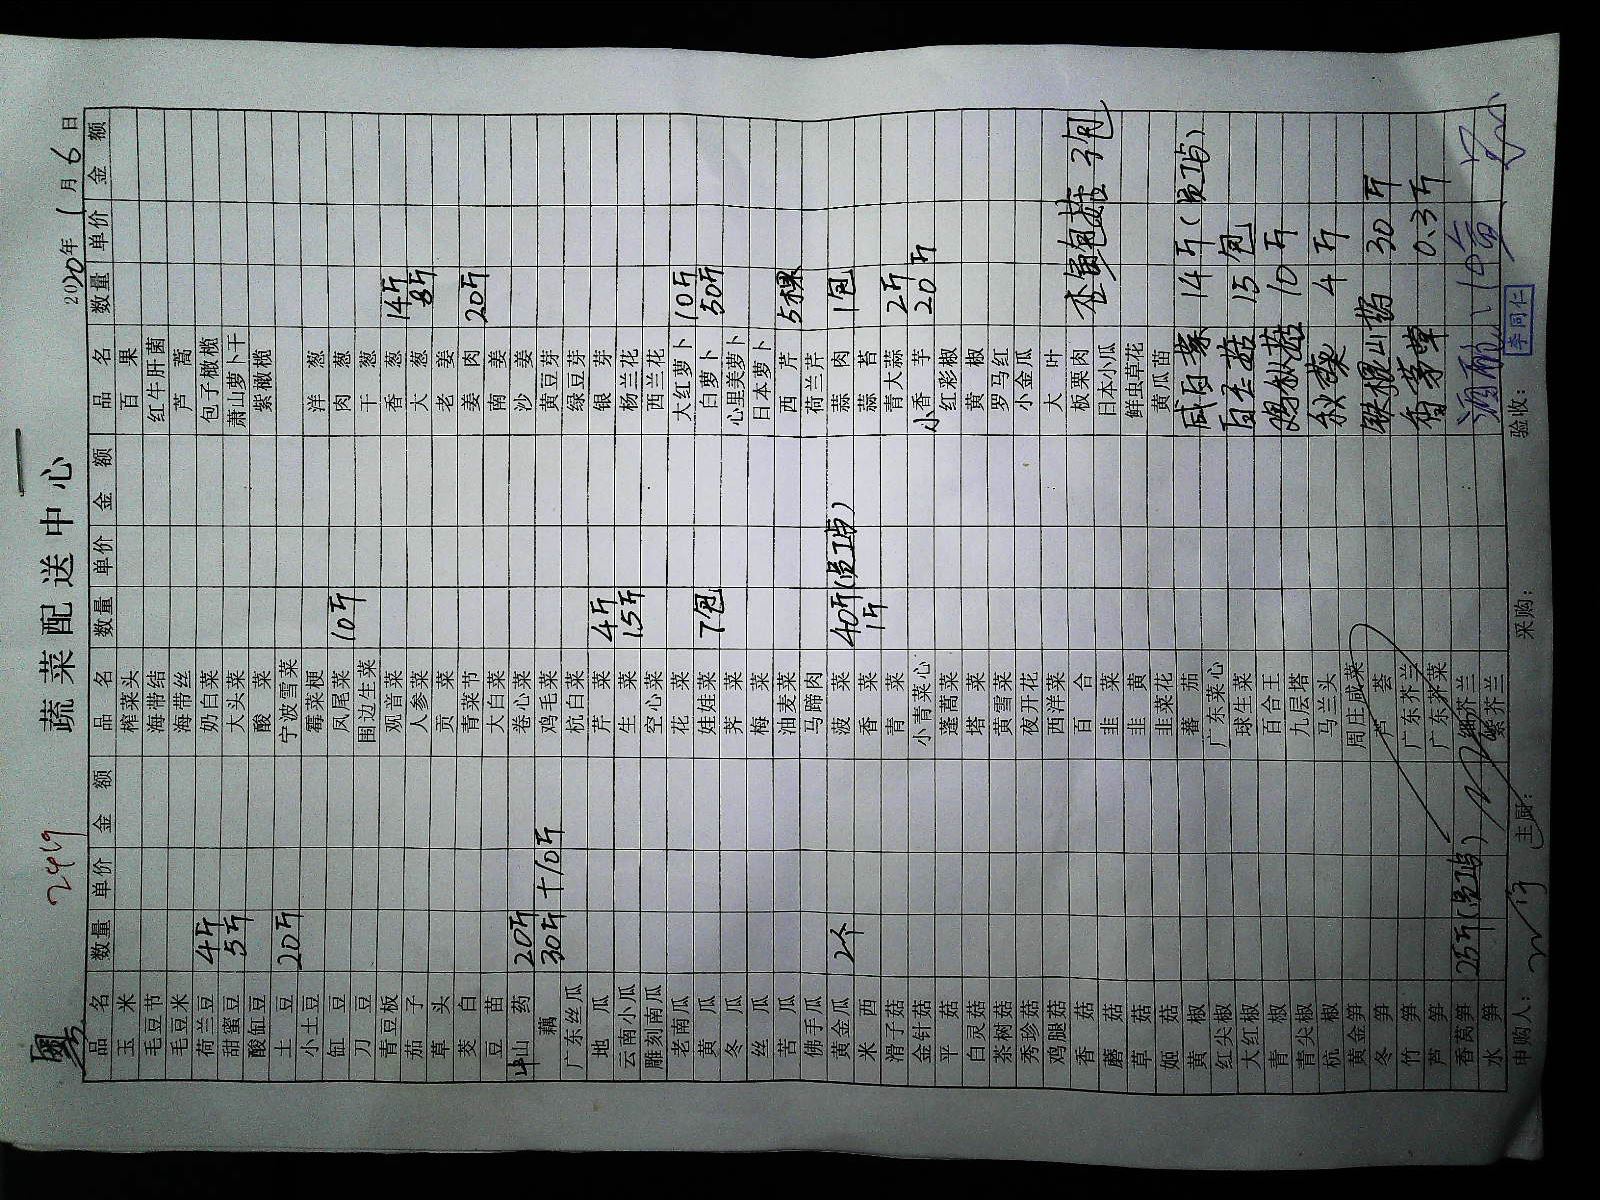 蔬菜配送中心
粤 2020年1月6日
品名 数量 单价 金额 品名 数量 单价 金额 品名 数量 单价 金额
玉米 榨菜头 百果
毛豆节 海带结 红牛肝菌
毛豆米 海带丝 芦蒿
荷兰豆 4斤 奶白菜 包子橄榄
甜蜜豆 5斤 大头菜 萧山萝卜干
酸缸豆 酸菜 紫橄榄
土豆 20斤 宁波雪菜
小土豆 霉菜梗 洋葱
缸豆 凤尾菜 10斤 肉葱
刀豆 围边生菜 干葱
青豆板 观音菜 香葱 14斤
茄子 人参菜 大葱 8斤
草头 贡菜 老姜
茭白 青菜节 姜肉 20斤
豆苗 大白菜 南姜
山药 20斤 卷心菜 沙姜
藕 30斤+10斤 鸡毛菜 黄豆芽
广东丝瓜 杭白菜 绿豆芽
地瓜 芹菜 4斤 银芽
云南小瓜 生菜 15斤 杨兰花
雕刻南瓜 空心菜 西兰花
老南瓜 花菜 大红萝卜 10斤
黄瓜 娃娃菜 7包 白萝卜 50斤
冬瓜 荠菜 心里美萝卜
丝瓜 梅菜 日本萝卜
苦瓜 油麦菜 西芹 5棵
佛手瓜 马蹄肉 荷兰芹
黄金瓜 2个 菠菜 40斤(员工点) 蒜肉 1包
米西 香菜 1斤 蒜苔
滑子菇 青菜 青大蒜 2斤
金针菇 小青菜心 小香芋 20斤
平菇 蓬蒿菜 红彩椒
白灵菇 塔菜 黄椒
茶树菇 黄雪菜 罗马红
秀珍菇 夜开花 小金瓜
鸡腿菇 西洋菜 大叶
香菇 百合 板栗肉 杏鲍菇 3包
蘑菇 韭菜 日本小瓜
草菇 韭黄 鲜虫草花
姬菇 韭菜花 黄瓜苗
黄椒 蕃茄 咸白菜 14斤(员工点)
红尖椒 广东菜心
大红椒 球生菜 白玉菇 15包
青椒 百合王 鸡枞菇 10斤
青尖椒 九层塔
杭椒 马兰头 秋葵 4斤
黄金笋 周庄咸菜
冬笋 芦荟 铁棍山药 30斤
竹笋 广东芥兰
芦笋 广东芥菜 香茅草 0.3斤
香莴笋 25斤(员工点) 细芥兰
水笋 紫芥兰
申购人: 主厨: 采购: 验收: 李同仁